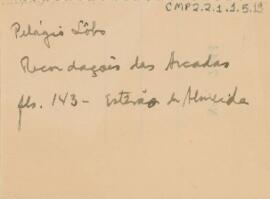 CMP2.2.1.1.5.19
Pelágio Lôbo
Recordações das Arcadas
fls. 143 - Estevão de Almeida